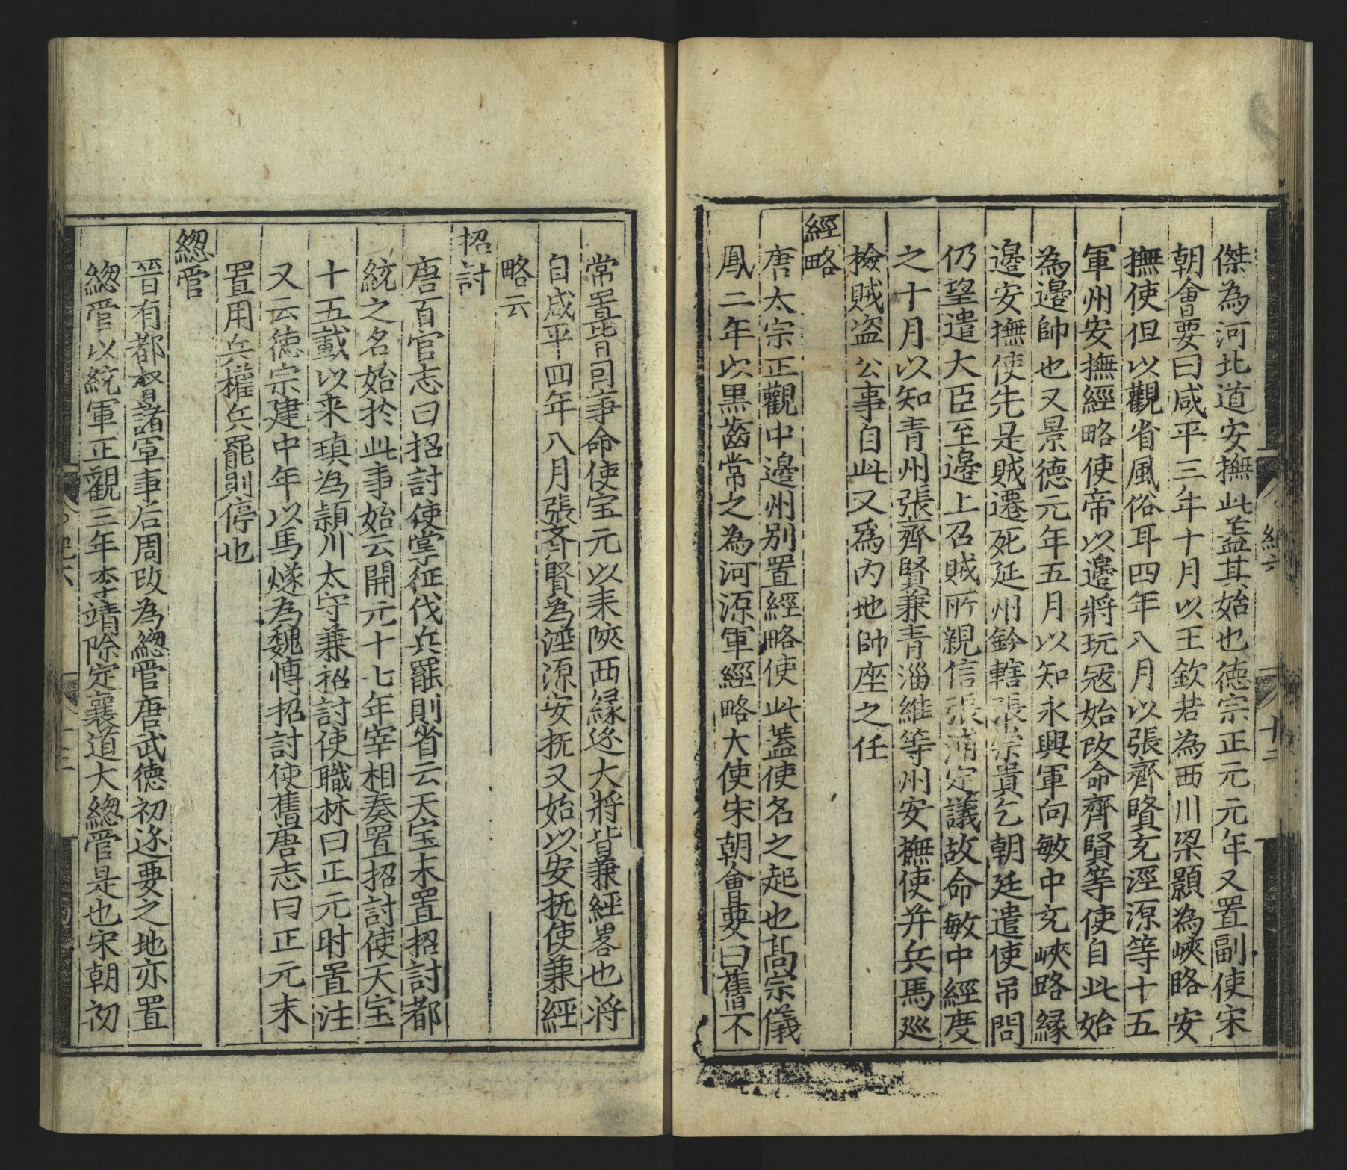 傑為河北道安撫此盖其始也徳宗正元元年又置副使宋
朝會要曰咸平三年十月以王欽若為西川梁顥為峽路安
撫使但以觀省風俗耳四年八月以張齊賢充涇源等十五
軍州安撫經略使帝以邊將玩寇始改命齊賢等使自此始
為邊帥也又景徳元年五月以知永興軍向敏中充峽路緣
邊安撫使先是賊遷死延州鈐轄張崇貴乞朝廷遣使吊問
仍望遣大臣至邊上召賊所親信張浦定議故命敏中經度
之十月以知青州張齊賢兼青淄維等州安撫使并兵馬巡
檢賊盗公事自此又爲内地帥座之任
經略
唐太宗正觀中邊州别置經略使此蓋使名之起也髙宗儀
鳳二年以黒齒常之為河源軍經略大使宋朝會要曰舊不
常置皆司事命使宝元以来陝西緣边大將皆兼經畧也將
自咸平四年八月張齐賢為涇源安抚又始以安抚使兼經
略云
招討
唐百官志曰招討使掌征伐兵罷則省云天宝末置招討都
統之名始於此事始云開元十七年宰相奏置招討使天宝
十五載以来瑱為頴川太守兼招討使職林曰正元时置注
又云徳宗建中年以馬燧為魏愽招討使舊唐志曰正元末
置用兵權兵罷則停也
緫管
晉有都督諸軍事后周改為緫管唐武徳初边要之地亦置
緫管以統軍正觀三年李靖除定襄道大緫管是也宋朝初
紀六
十二